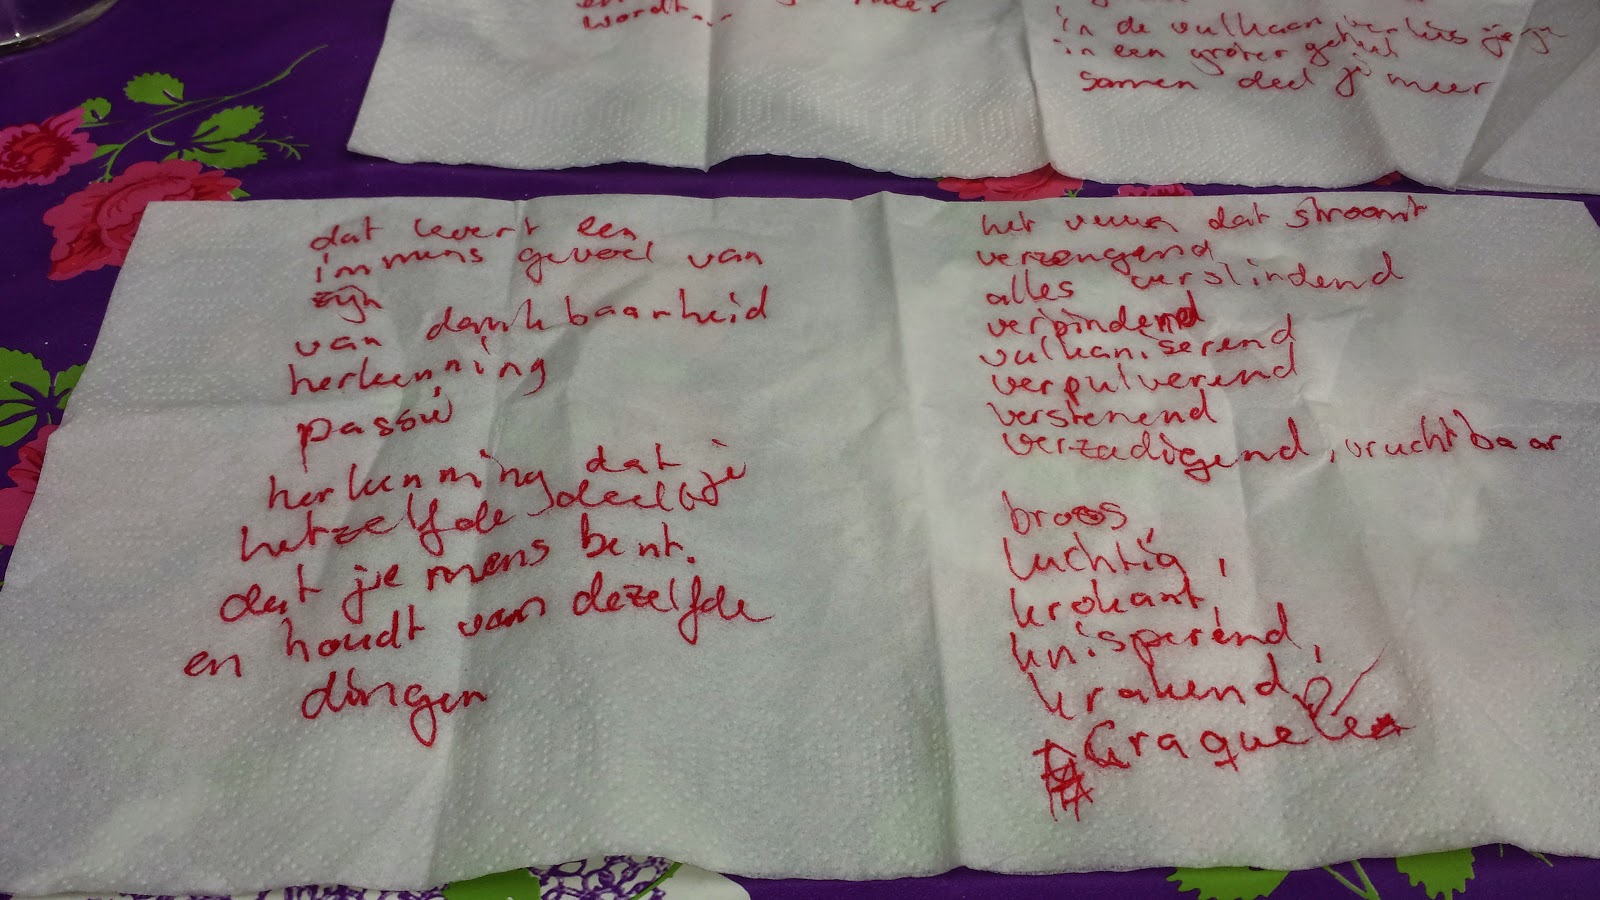 wordt...
in de vulkaan verlies je je
in een groter geheel
samen deel je meer
dat levert een
immens gevoel van
zijn
van dankbaarheid
herkenning
passie
herkenning dat
hetzelfde deel je
dat je mens bent.
en houdt van dezelfde
dingen
het vuur dat stroomt
verzengend
alles verslindend
verbindend
vulkaniserend
verpulverend
verstenend
verzadigend, vruchtbaar
broos,
luchtig,
krokant,
knisperend,
krakend,
Craquelé